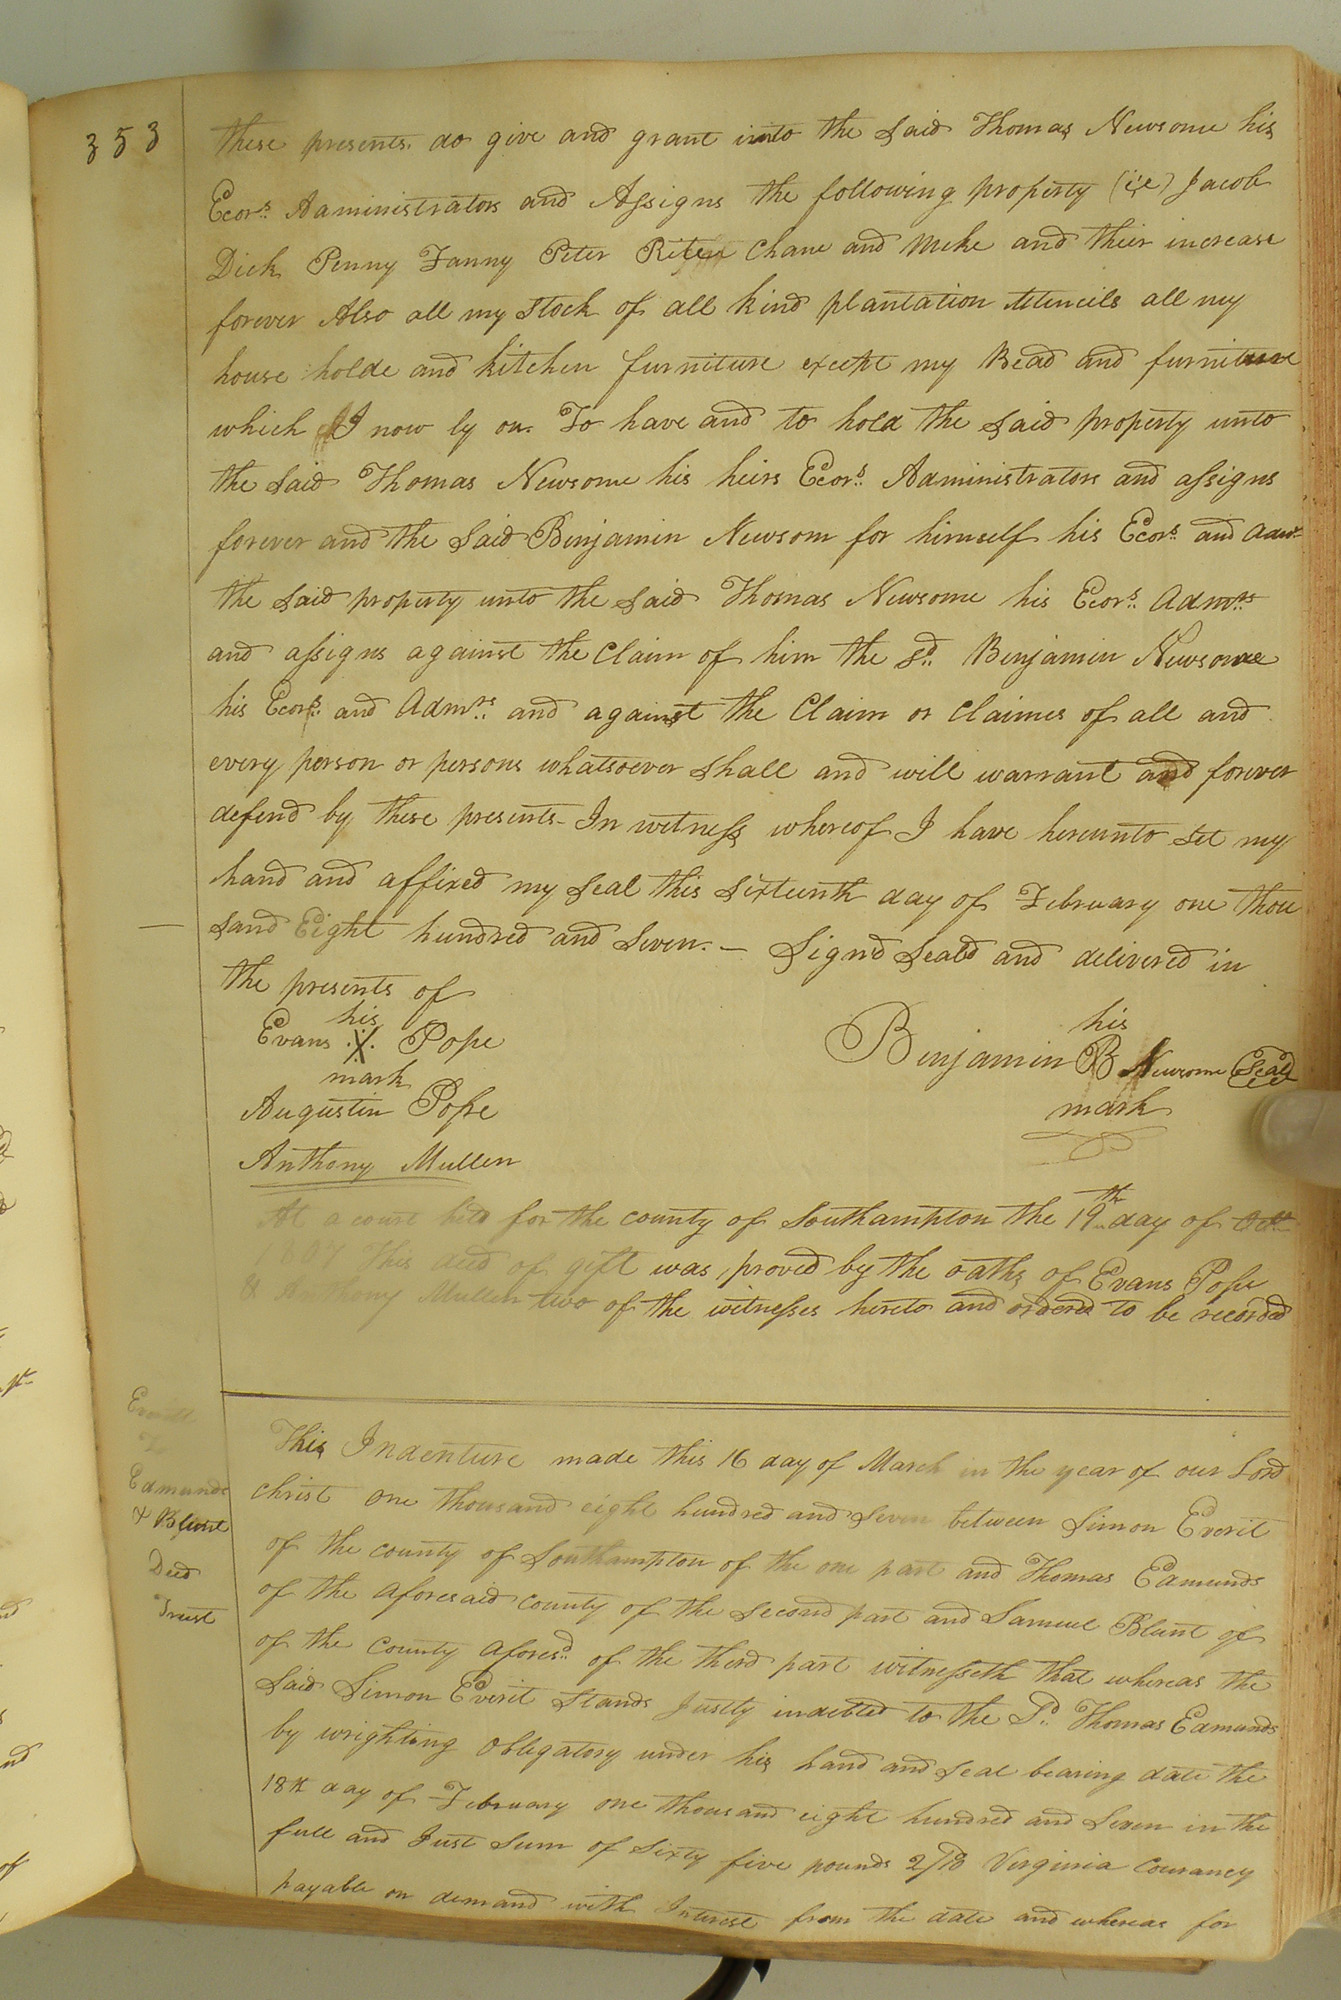 353
these presents do give and grant unto the said Thomas Newsome his
Ecors. Administrators and Assigns the following property (i;e) Jacob
Dick Penny Fanny Peter Chane and Meke and their increase
forever Also all my Stock of all kind plantation Utencils all my
house holde and kitchen furniture except my Bead and furniture
which I now ly on. To have and to hold the said property unto
the said Thomas Newsome his heirs Ecors. Administrators and assigns
forever and the said Benjamin Newsom for himself his Ecors. and Admrs
the said property unto the said Thomas Newsome his Ecors. Admrs
and assigns against the Claim of him the sd. Benjamin Newsome
his Ecors. and Admrs. and against the Claim or Claimes of all and
every person or persons whatsoever shall and will warrant and forever
defend by these presents - In witness whereof I have hereunto set my
hand and affixed my seal this sixteenth day of February one thou
sand Eight hundred and seven. — Signd Seald and delivered in
the presents of
his
Evans X Pope
mark
Augustin Pope
Anthony Mullen
his
Benjamin B Newsome Seal
mark
At a court held for the county of Southampton the 19th day of Octr
1807 This deed of gift was proved by the oaths of Evans Pope
& Anthony Mullen two of the witnesses hereto and ordered to be recorded
Everitt
To
Edmunds
& Blunt
Deed
Trust
This Indenture made this 16 day of March in the year of our Lord
christ one thousand eight hundred and seven between Simon Everit
of the county of Southampton of the one part and Thomas Edmunds
of the aforesaid county of the second part and Samuel Blunt of
of the county aforesd. of the third part witnesseth that whereas the
said Simon Everit stands Justly indebted to the Sd. Thomas Edmunds
by wrighting obligatory under his hand and seal bearing date the
18th day of February one thousand eight hundred and seven in the
full and Just sum of sixty five pounds Virginia Courancy
payable on demand with Interest from the date and whereas for